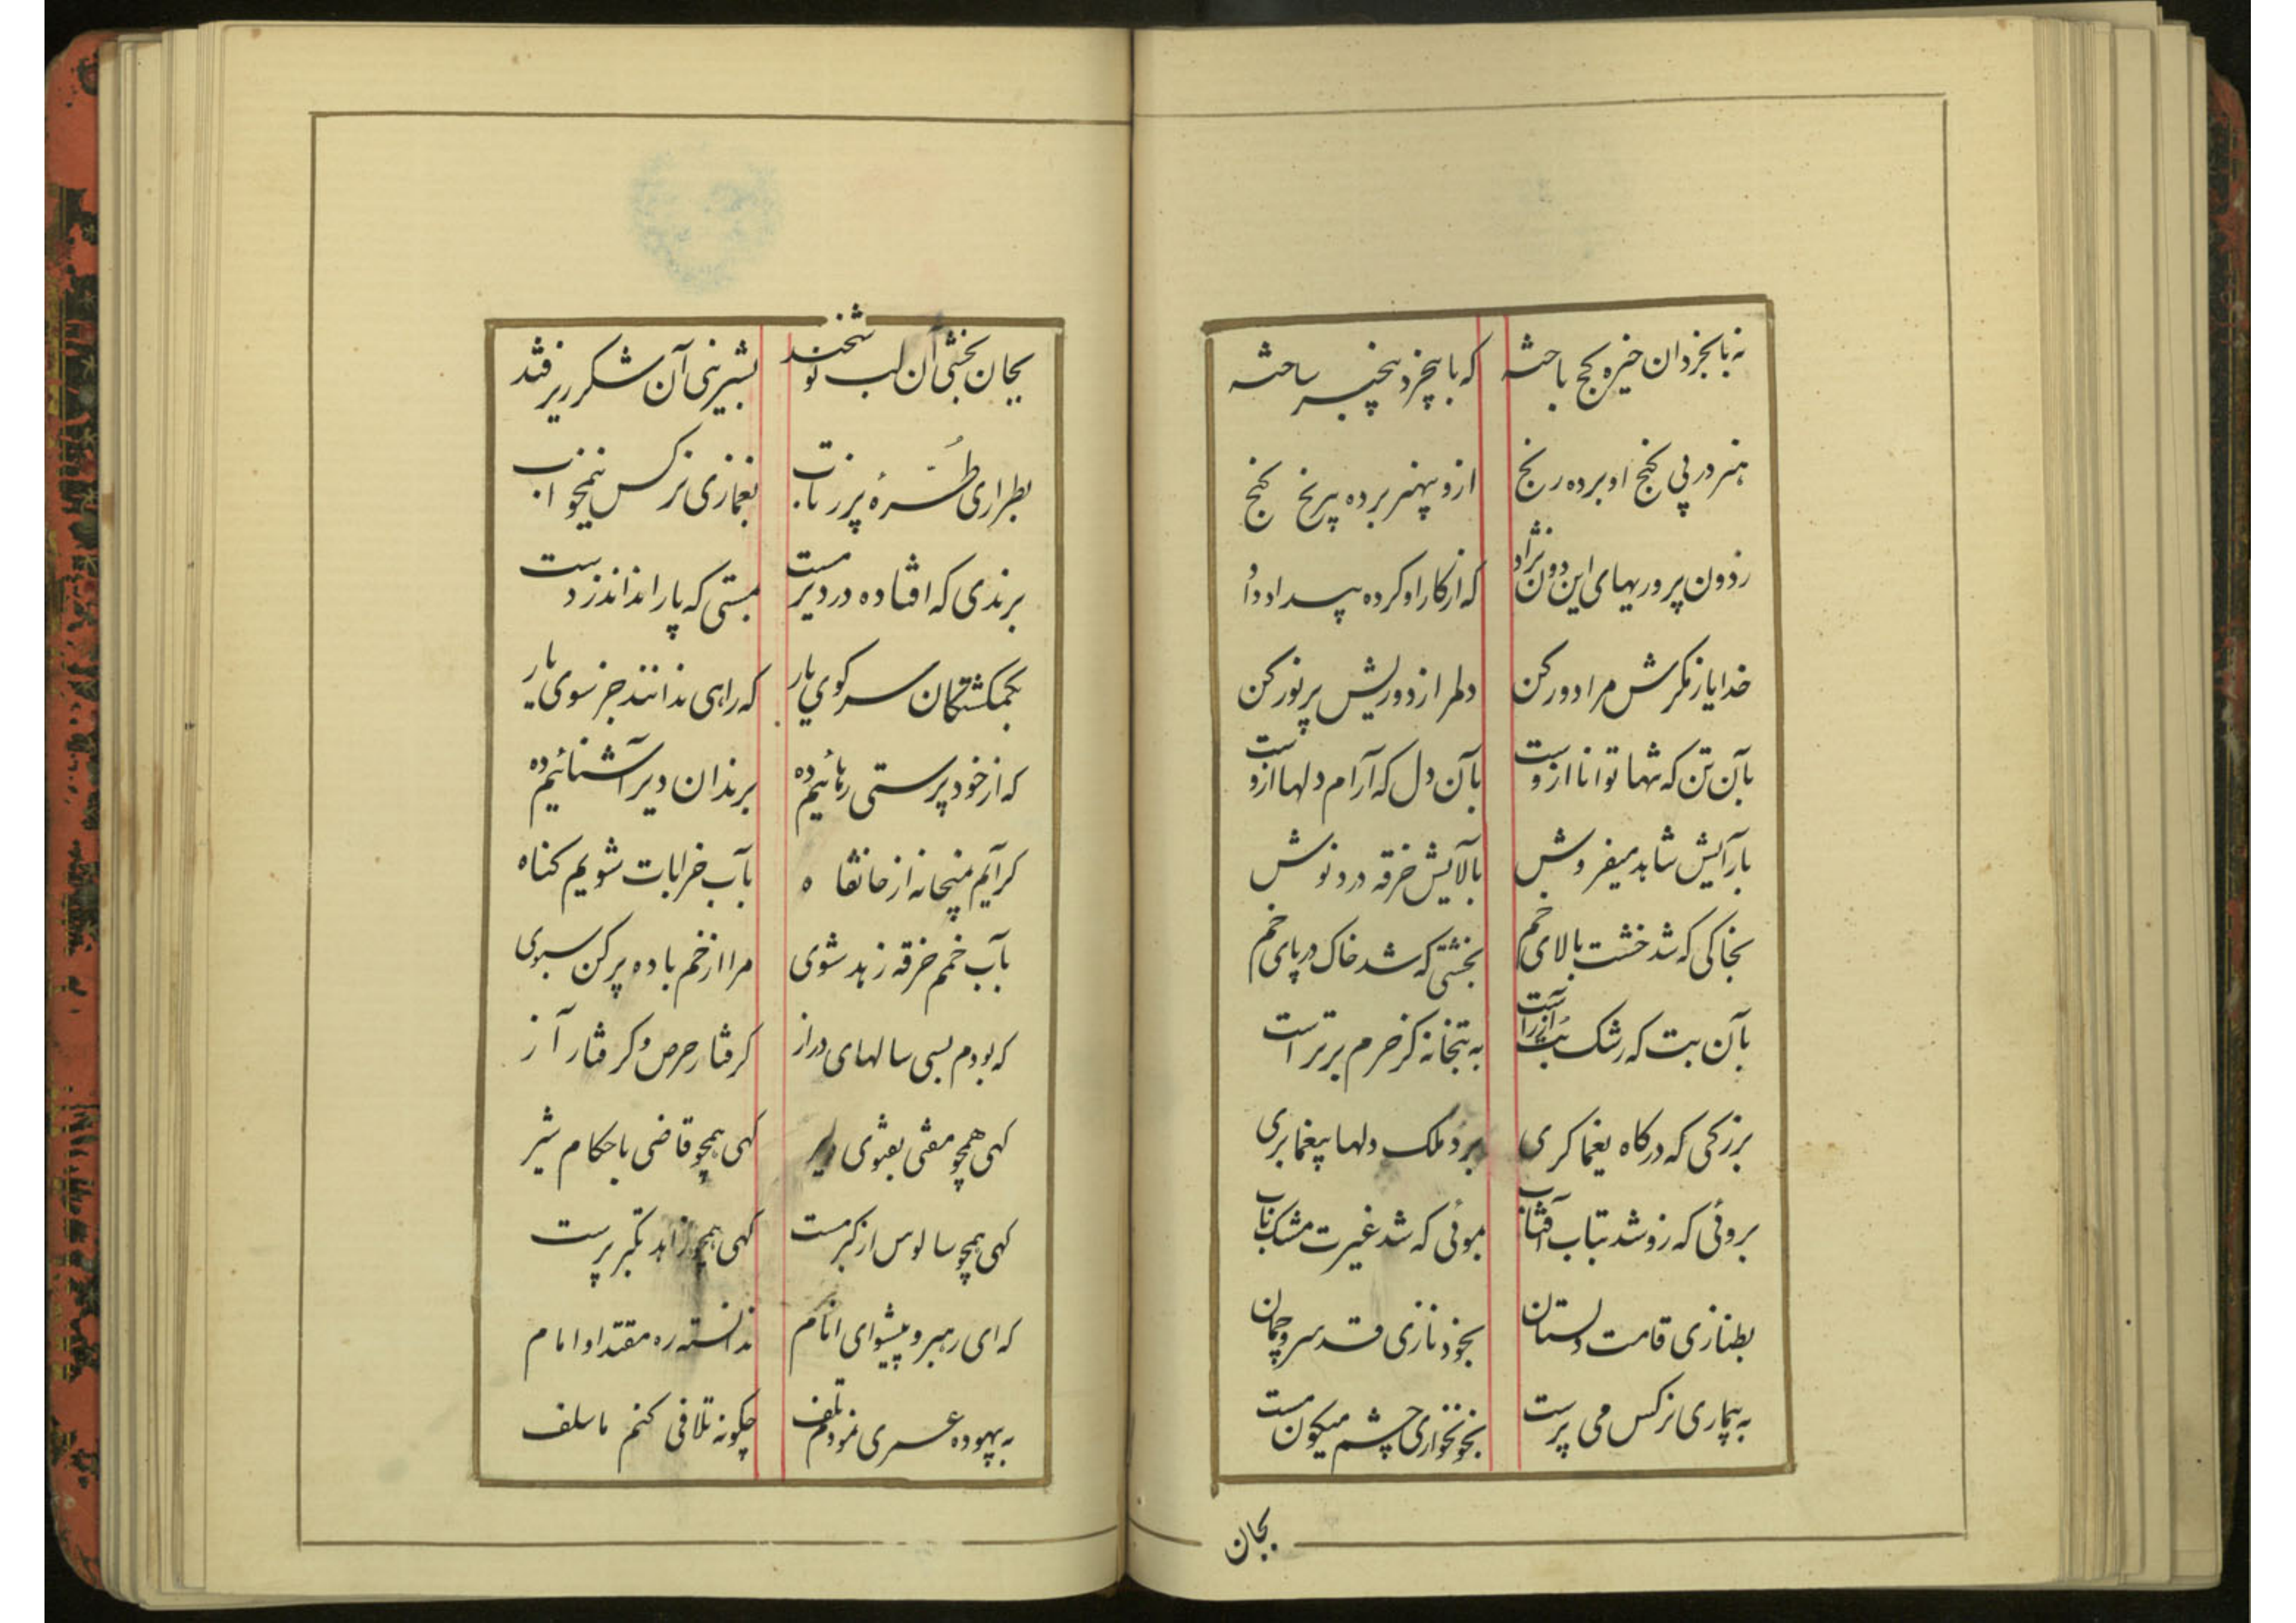 نه بابخردان خیره کج باخته که با بیخرد بیخبر ساخته
هنر در پی کنج او برده رنج ازو بیهنر برده بیرنج کنج
ز دون پروریهای این دون نژاد که از کار او کرده بیداد داد
خدایا ز مکرش مرا دور کن دلمرا ز دوریش پرنور کن
بآن تن که تنها توانا ازوست بآن دل که آرام دلها ازوست
بآرایش شاهد میفروش بالایش خرقه درد نوش
بخاکی که شد خشت بالای خم بخشتی که شد خاک در پای خم
بآن بت که رشک بت آزر است به بتخانه کز حرم برتر است
بزرکی که درکاه یغما کری برد ملک دلها بیغما بری
بروئی که زو شد بتاب آفتاب بموئی که شد غیرت مشک ناب
بطنازی قامت دلستان بخود نازی قد سرو چمان
به بیماری نرکس می پرست بخونخواری چشم میکون مست
بجان
بجان بخشی آن لب نوشخند بشیرینی آن شکر ریز قند
بطراری طُرّهٔ پر ز تاب بغمازی نرکس نیمخواب
برندی که افتاده در دیر مست بمستی که پا را نداند ز دست
بکمکشتکان سر کوی یار که راهی ندانند جز سوی یار
که از خود پرستی رهائیم ده برندان دیر آشنائیم ده
کرآیم بمیخانه از خانقاه بآب خرابات شویم کناه
بآب خمم خرقه زهد شوی مرا از خم باده پر کن سبوی
که بودم بسی سالهای دراز کرفتار حرص و کرفتار آز
کهی همچو مفتی بفتوی دلیر کهی همچو قاضی باحکام شیر
کهی همچو سالوس از کبر مست کهی همچو زاهد تکبر پرست
که ای رهبر و پیشوای انام ندانسته ره مقتدا و امام
به بیهوده عمری نمودم تلف چکونه تلافی کنم ما سلف